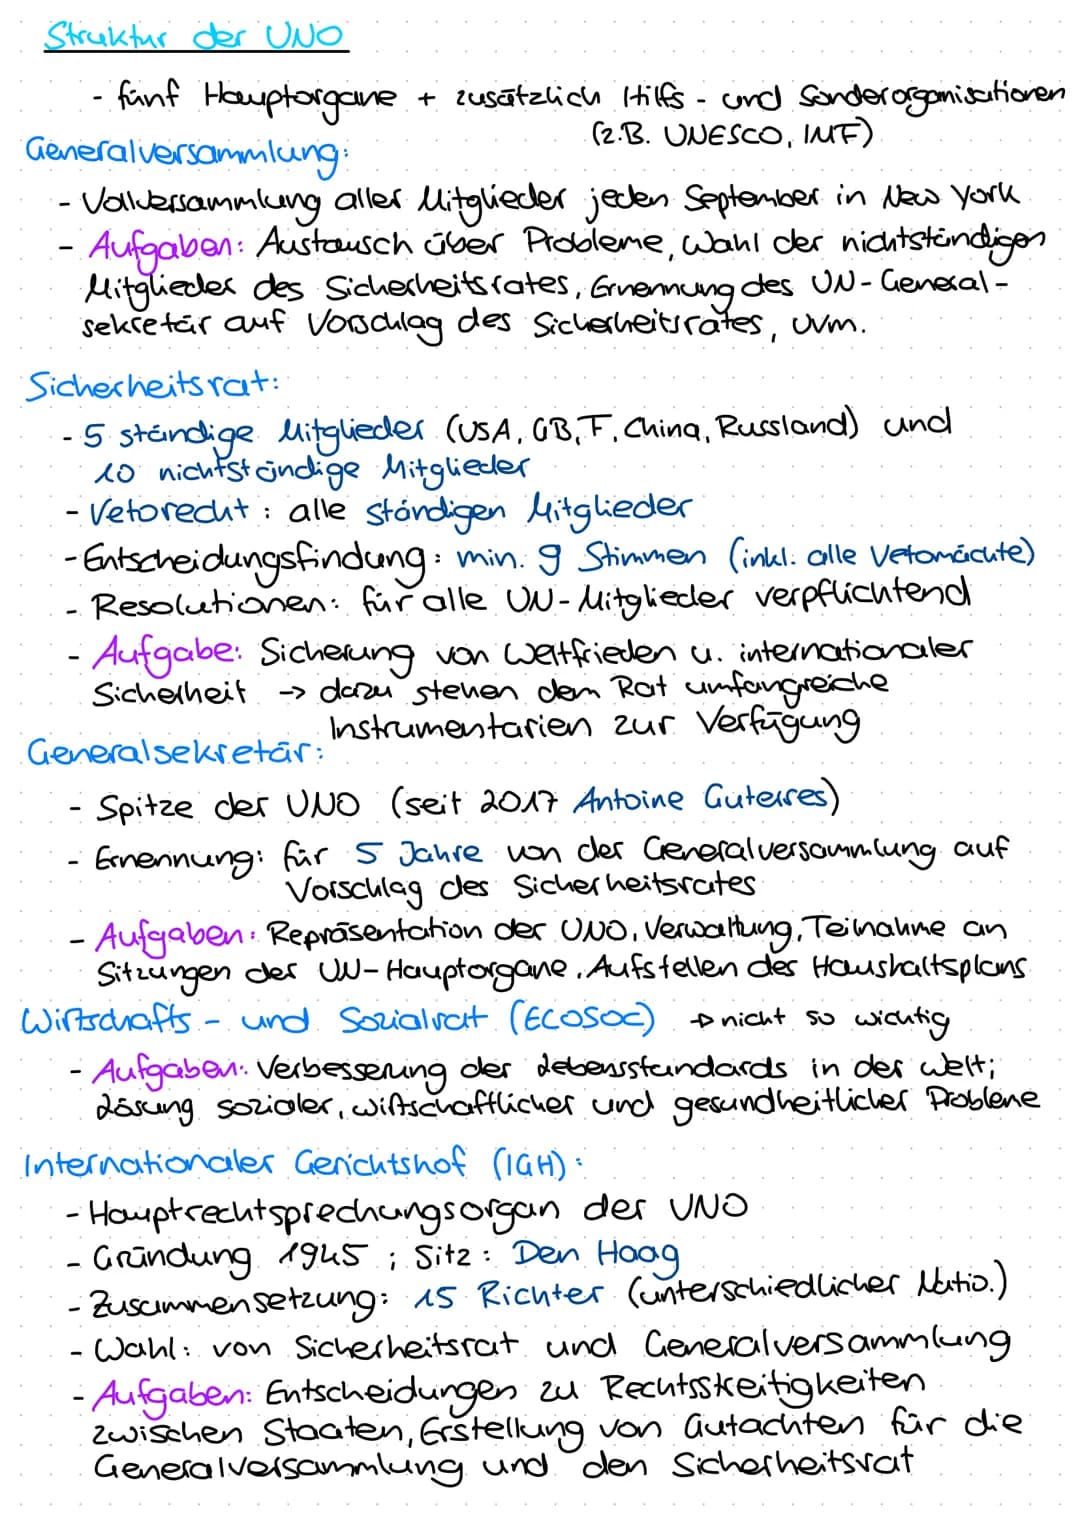 Struktur der UNO
- fünf Hauptorgane + zusätzlich Hilfs- und Sonderorganisationen
(z.B. UNESCO, IMF)
Generalversammlung:
- Vollversammlung aller Mitglieder jeden September in New York
- Aufgaben: Austausch über Probleme, Wahl der nichtständigen
Mitglieder des Sicherheitsrates, Ernennung des UN-General-
sekretär auf Vorschlag des Sicherheitsrates, uvm.
Sicherheitsrat:
- 5 ständige Mitglieder (USA, GB, F, China, Russland) und
10 nichtständige Mitglieder
- Vetorecht: alle ständigen Mitglieder
- Entscheidungsfindung: min. 9 Stimmen (inkl. alle Vetomächte)
- Resolutionen: für alle UN-Mitglieder verpflichtend
- Aufgabe: Sicherung von Weltfrieden u. internationaler
Sicherheit → dazu stehen dem Rat umfangreiche
Instrumentarien zur Verfügung
Generalsekretär:
- Spitze der UNO (seit 2017 Antoine Guterres)
- Ernennung: für 5 Jahre von der Generalversammlung auf
Vorschlag des Sicherheitsrates
- Aufgaben: Repräsentation der UNO, Verwaltung, Teilnahme an
Sitzungen der UN-Hauptorgane, Aufstellen des Haushaltsplans
Wirtschafts- und Sozialrat (ECOSOC) → nicht so wichtig
- Aufgaben: Verbesserung der Lebensstandards in der Welt;
Lösung sozialer, wirtschaftlicher und gesundheitlicher Probleme
Internationaler Gerichtshof (IGH):
- Hauptrechtsprechungsorgan der UNO
- Gründung 1945; Sitz: Den Haag
- Zusammensetzung: 15 Richter (unterschiedlicher Natio.)
- Wahl: von Sicherheitsrat und Generalversammlung
- Aufgaben: Entscheidungen zu Rechtsstreitigkeiten
zwischen Staaten, Erstellung von Gutachten für die
Generalversammlung und den Sicherheitsrat